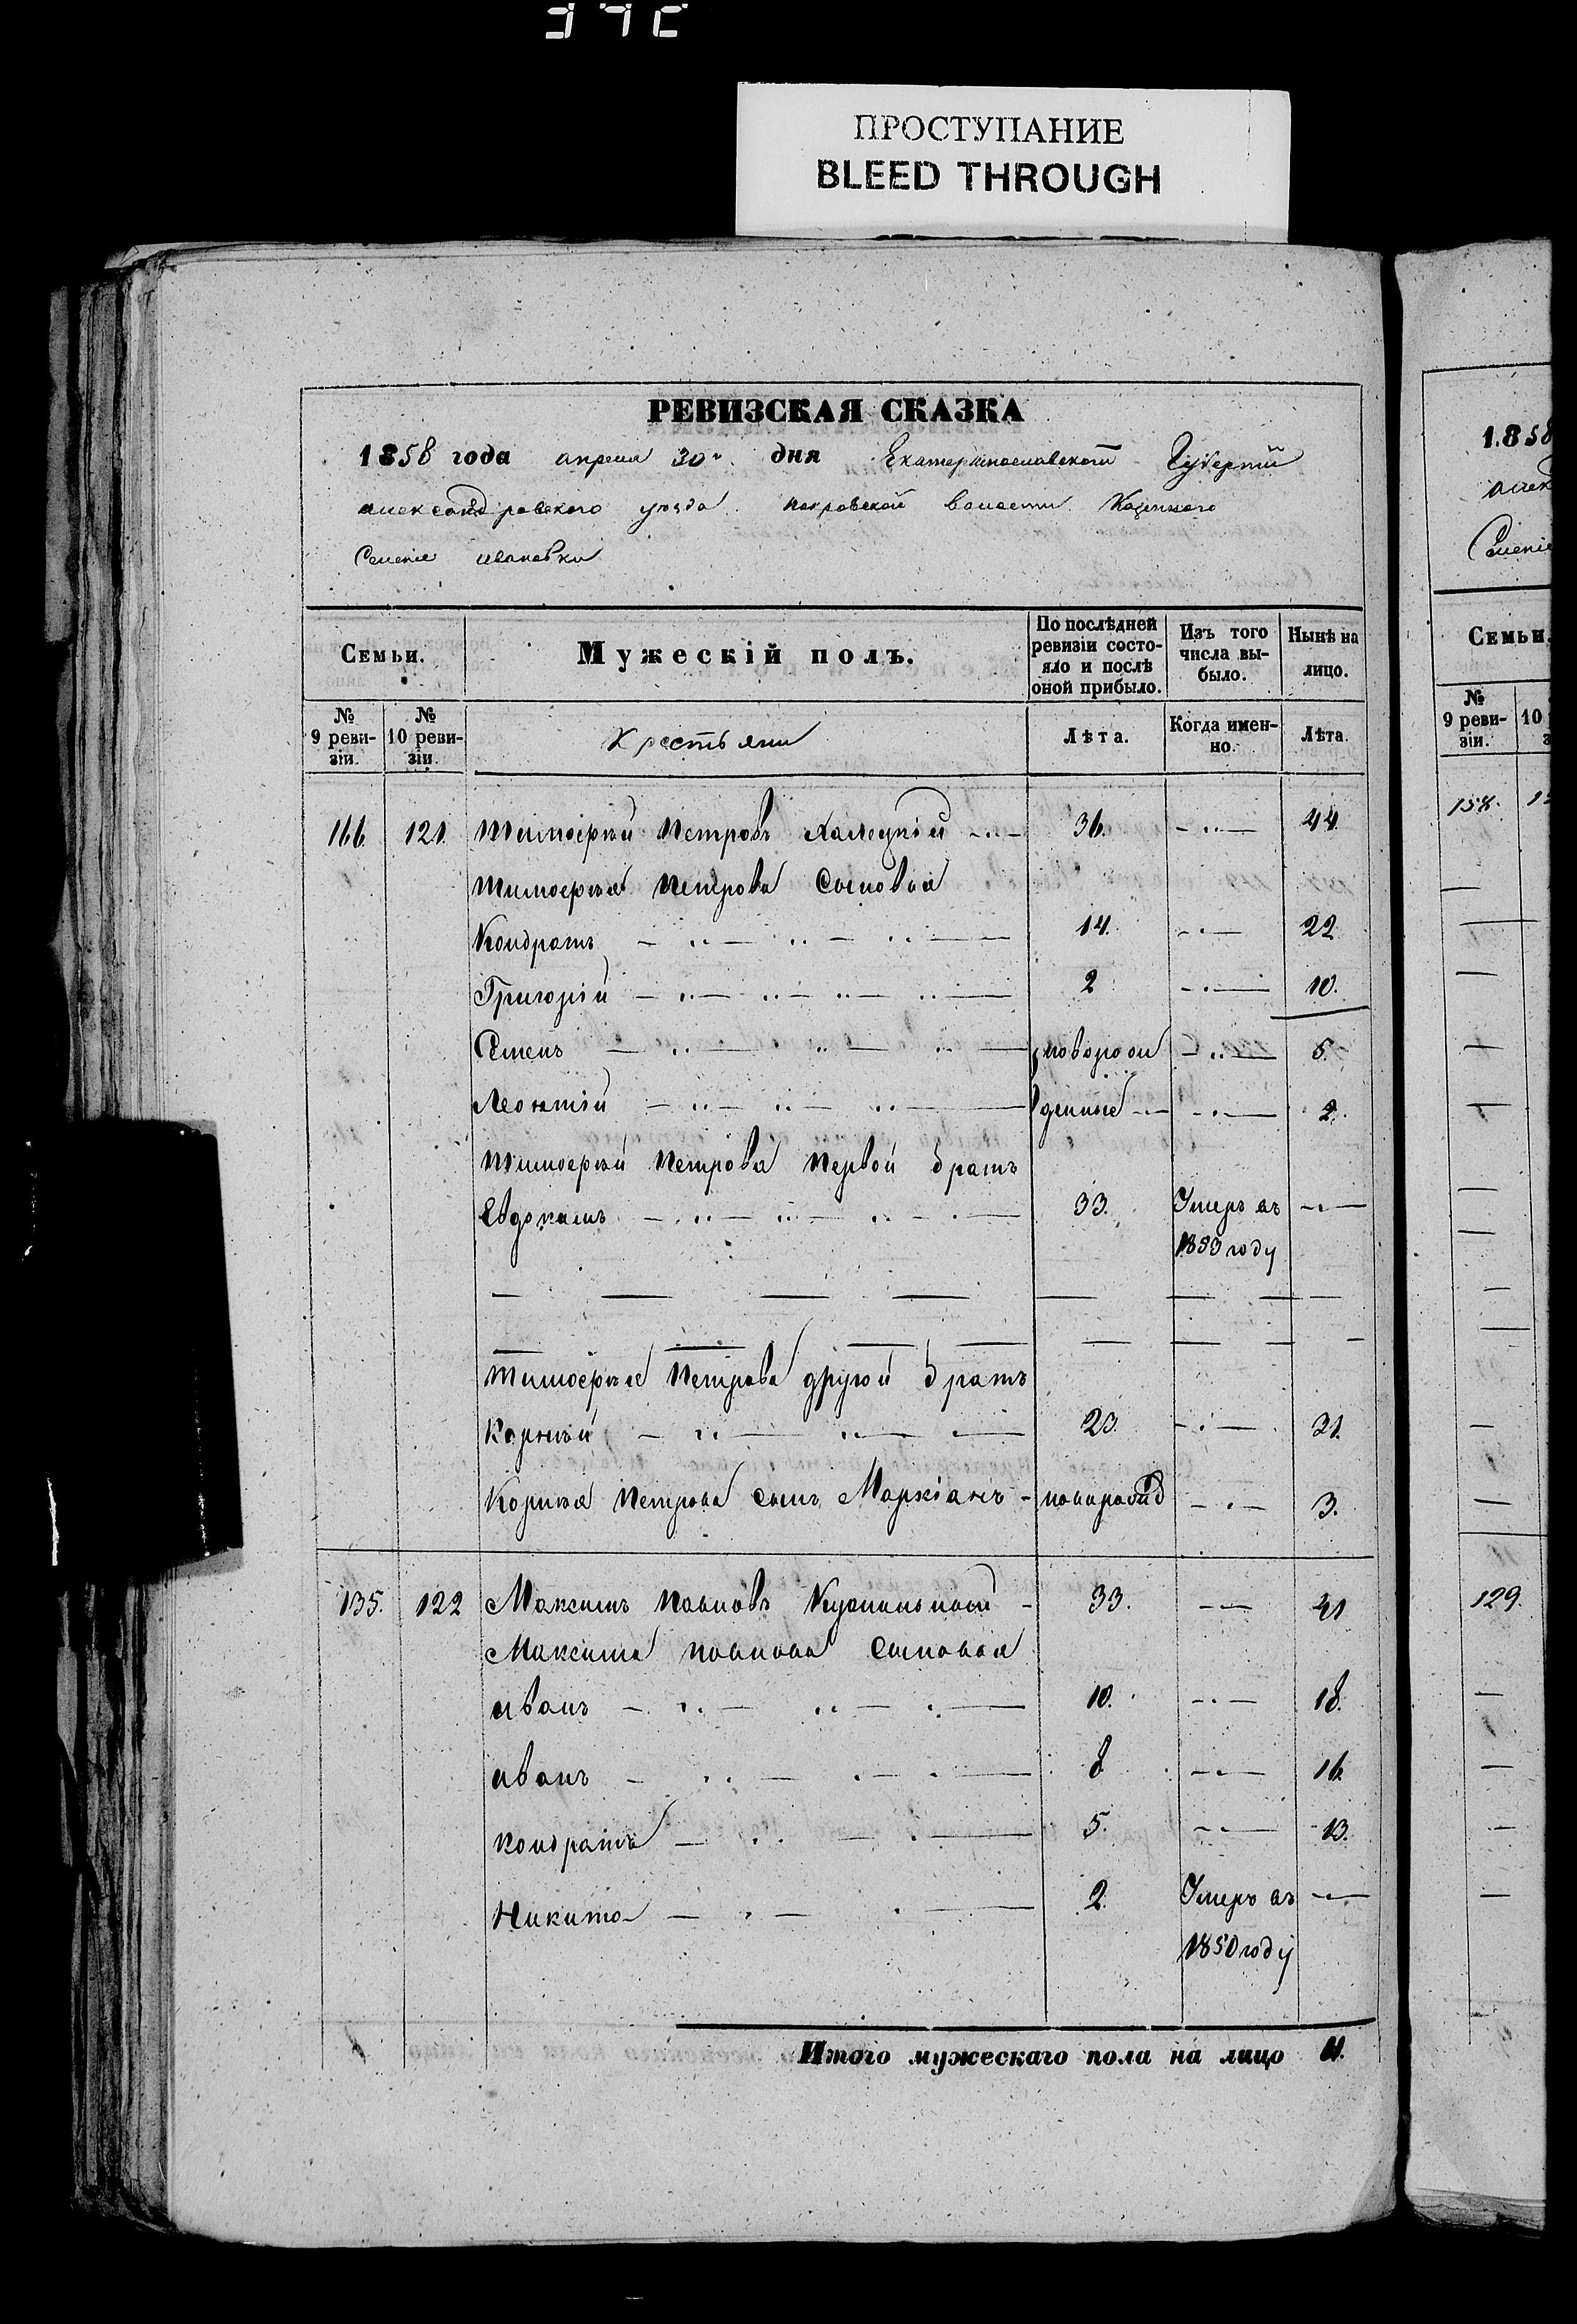 ПРОСТУПАНИЕ
BLEED THROUGH
РЕВИЗСКАЯ СКАЗКА
1858 года апреля 30го дня Екатеринославской Губерніи
александровского уезда покровской волости Казенного
Селенія ивановки
Семьи.
Мужескій полъ.
По послѣдней ревизіи состояло и послѣ оной прибыло.
Изъ того числа выбыло.
Нынѣ на лицо.
№ 9 ревизіи.
№ 10 ревизіи.
Крестьяни
Лѣта.
Когда именно.
Лѣта.
166. 121. Тимофѣй Петровъ 36. 44
Тимофѣя Петрова Сыновья
Кондратъ 14. 22
Григорій 2 10.
Семенъ новорож 5.
Леонтій денные 2.
Тимофѣй Петрова Первой братъ
Евдокимъ 33. Умеръ въ
1853 году
Тимофѣя Петрова другой братъ
Корнѣй 23. 31.
Корнѣя Петрова сынъ Маркіанъ - новорожд 3.
135. 122 Максимъ Павловъ 33. 41
Максима павлова Сыновья
иванъ 10. 18.
иванъ 8 16.
кондратъ 5. 13.
Никита 2. Умеръ въ
1850 году
Итого мужескаго пола на лицо 11.
1.858
Семьи.
№ 9 ревизіи.
10
158.
129.